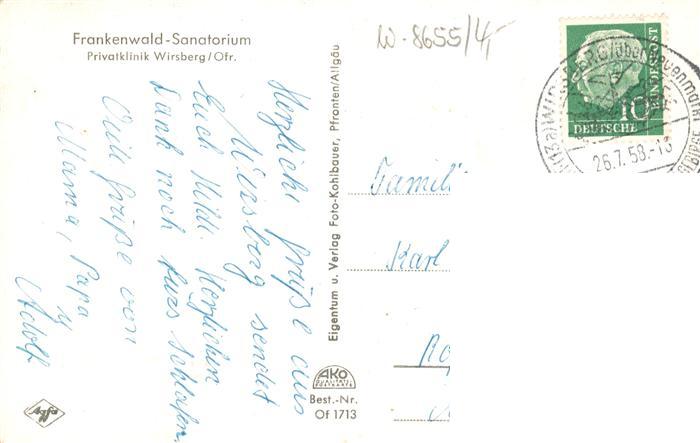 Frankenwald-Sanatorium
Privatklinik Wirsberg/Ofr.
W-8655/4,-
Herzliche Grüße aus
Wirsberg sendet
Euch Hilde. Herzlichen
Dank noch fürs
Viele Grüße von
Mama, Papa
u
Adolf
Eigentum u. Verlag Foto-Kohlbauer, Pfronten/Allgäu
Famili
Karl
AKO
QUALITÄTS
POSTKARTE
Best.-Nr.
Of 1713
Agfa
10
DEUTSCHE
BUNDESPOST
über Neuenmarkt
26.7.58.-